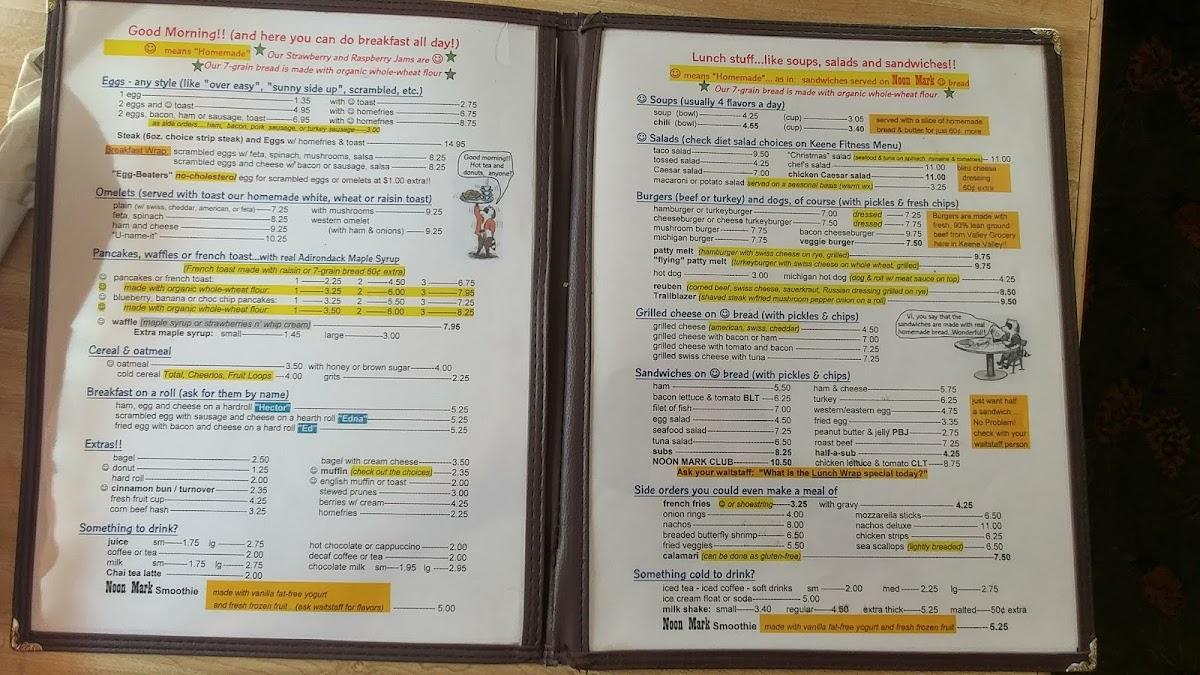 Good Morning!! (and here you can do breakfast all day!)
means "Homemade" Our Strawberry and Raspberry Jams are
Our 7-grain bread is made with organic whole-wheat flour
Eggs - any style (like "over easy", "sunny side up", scrambled, etc.)
1 egg 1.35 with toast 2.75
2 eggs and toast 4.95 with homefries 6.75
2 eggs, bacon, ham or sausage, toast 6.95 with homefries 8.75
as side orders... ham, bacon, pork sausage, or turkey sausage 3.00
Steak (6oz. choice strip steak) and Eggs w/ homefries & toast 14.95
Breakfast Wrap: scrambled eggs w/ feta, spinach, mushrooms, salsa 8.25
scrambled eggs and cheese w/ bacon or sausage, salsa 8.25
"Egg-Beaters" no-cholesterol egg for scrambled eggs or omelets at $1.00 extra!!
Good morning!! Hot tea and donuts, anyone?
Omelets (served with toast our homemade white, wheat or raisin toast)
plain (w/ swiss, cheddar, american, or feta) 7.25 with mushrooms 9.25
feta, spinach 8.25 western omelet
ham and cheese 9.25 (with ham & onions) 9.25
"U-name-it" 10.25
Pancakes, waffles or french toast...with real Adirondack Maple Syrup
(French toast made with raisin or 7-grain bread 60¢ extra)
pancakes or french toast: 1 2.25 2 4.50 3 6.75
made with organic whole-wheat flour: 1 3.25 2 6.00 3 7.95
blueberry, banana or choc chip pancakes: 1 3.25 2 5.50 3 7.25
made with organic whole-wheat flour: 1 3.50 2 6.00 3 8.25
waffle (maple syrup or strawberries n' whip cream) 7.95
Extra maple syrup: small 1.45 large 3.00
Cereal & oatmeal
oatmeal 3.50 with honey or brown sugar 4.00
cold cereal Total, Cheerios, Fruit Loops 4.00 grits 2.25
Breakfast on a roll (ask for them by name)
ham, egg and cheese on a hardroll "Hector" 5.25
scrambled egg with sausage and cheese on a hearth roll "Edna" 5.25
fried egg with bacon and cheese on a hard roll "Ed" 5.25
Extras!!
bagel 2.50 bagel with cream cheese 3.50
donut 1.25 muffin (check out the choices) 2.35
hard roll 2.00 english muffin or toast 2.00
cinnamon bun / turnover 2.35 stewed prunes 3.00
fresh fruit cup 4.25 berries w/ cream 4.25
corn beef hash 3.25 homefries 2.25
Something to drink?
juice sm 1.75 lg 2.75 hot chocolate or cappuccino 2.00
coffee or tea 2.00 decaf coffee or tea 2.00
milk sm 1.75 lg 2.75 chocolate milk sm 1.95 lg 2.95
Chai tea latte 2.00
Noon Mark Smoothie made with vanilla fat-free yogurt
and fresh frozen fruit... (ask waitstaff for flavors) 5.00
Lunch stuff...like soups, salads and sandwiches!!
means "Homemade"... as in: sandwiches served on Noon Mark bread
Our 7-grain bread is made with organic whole-wheat flour
Soups (usually 4 flavors a day)
soup (bowl) 4.25 (cup) 3.05
chili (bowl) 4.55 (cup) 3.40
served with a slice of homemade
bread & butter for just 60¢ more
Salads (check diet salad choices on Keene Fitness Menu)
taco salad 9.50 "Christmas" salad (seafood & tuna on spinach, romaine & tomatoes) 11.00
tossed salad 4.25 chef's salad 11.00
Caesar salad 7.00 chicken Caesar salad 11.00
macaroni or potato salad served on a seasonal basis (warm wx) 3.25
bleu cheese
dressing
60¢ extra
Burgers (beef or turkey) and dogs, of course (with pickles & fresh chips)
hamburger or turkeyburger 7.00 dressed 7.25
cheeseburger or cheese turkeyburger 7.50 dressed 7.75
mushroom burger 7.75 bacon cheeseburger 9.75
michigan burger 7.75 veggie burger 7.50
Burgers are made with
fresh, 90% lean ground
beef from Valley Grocery
here in Keene Valley!!
patty melt (hamburger with swiss cheese on rye, grilled) 9.75
"flying" patty melt (turkeyburger with swiss cheese on whole wheat, grilled) 9.75
hot dog 3.00 michigan hot dog (dog & roll w/ meat sauce on top) 4.25
reuben (corned beef, swiss cheese, sauerkraut, Russian dressing grilled on rye) 8.50
Trailblazer (shaved steak w/fried mushroom pepper onion on a roll) 9.50
Grilled cheese on bread (with pickles & chips)
grilled cheese (american, swiss, cheddar) 4.50
grilled cheese with bacon or ham 7.00
grilled cheese with tomato and bacon 7.25
grilled swiss cheese with tuna 7.25
Vi, you say that the
sandwiches are made with real
homemade bread...Wonderful!!
Sandwiches on bread (with pickles & chips)
ham 5.50 ham & cheese 5.75
bacon lettuce & tomato BLT 6.25 turkey 6.25
filet of fish 7.00 western/eastern egg 4.75
egg salad 4.50 fried egg 3.35
seafood salad 7.25 peanut butter & jelly PBJ 2.75
tuna salad 6.50 roast beef 7.25
subs 8.25 half-a-sub 4.25
NOON MARK CLUB 10.50 chicken lettuce & tomato CLT 8.75
just want half
a sandwich...
No Problem!
check with your
waitstaff person
Ask your waitstaff: "What is the Lunch Wrap special today?"
Side orders you could even make a meal of
french fries or shoestring 3.25 with gravy 4.25
onion rings 4.00 mozzarella sticks 6.50
nachos 8.00 nachos deluxe 11.00
breaded butterfly shrimp 6.50 chicken strips 6.25
fried veggies 5.50 sea scallops (lightly breaded) 6.50
calamari (can be done as gluten-free) 7.50
Something cold to drink?
iced tea - iced coffee - soft drinks sm 2.00 med 2.25 lg 2.75
ice cream float or soda 5.00
milk shake: small 3.40 regular 4.50 extra thick 5.25 malted 50¢ extra
Noon Mark Smoothie made with vanilla fat-free yogurt and fresh frozen fruit 5.25